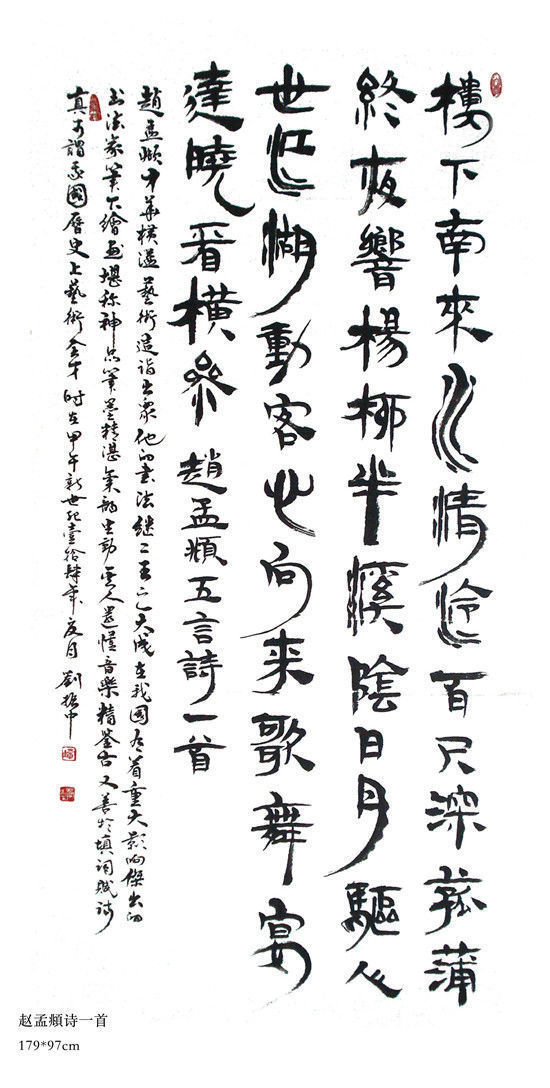 樓下南來水清泠百尺深菰蒲
終夜響楊柳半溪陰日月驅人
世江湖動客心向来歌舞宴
達曉看橫參 趙孟頫五言詩一首
趙孟頫才華橫溢藝術造詣出眾他的书法继二王之大成在我國有着重大影响傑出的
书法家筆下繪画堪称神品筆墨精湛氣韵生動人還懂音樂精鉴古又善於填詞賦詩
真可謂我國歷史上藝術全才時在甲午新世紀壹拾肆年夏月劉振中
赵孟頫诗一首
179*97cm